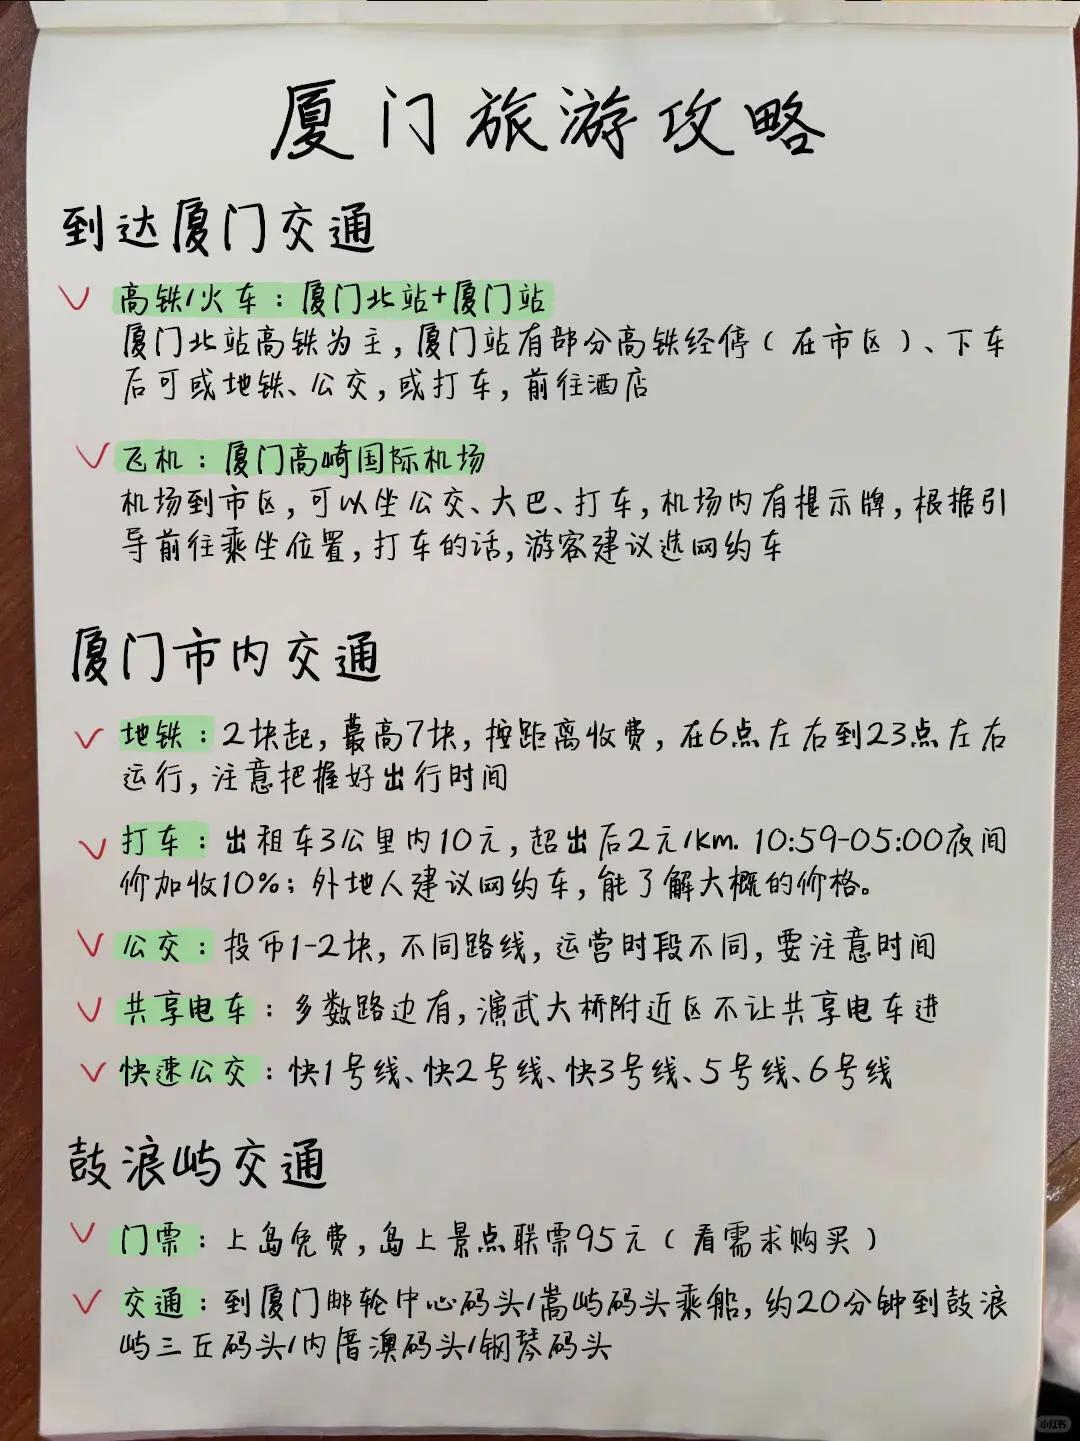 厦门旅游攻略
到达厦门交通
高铁/火车：厦门北站+厦门站
厦门北站高铁为主，厦门站有部分高铁经停（在市区）、下车
后可或地铁、公交，或打车，前往酒店
飞机：厦门高崎国际机场
机场到市区，可以坐公交、大巴、打车，机场内有提示牌，根据引
导前往乘坐位置，打车的话，游客建议选网约车
厦门市内交通
地铁：2块起，最高7块，按距离收费，在6点左右到23点左右
运行，注意把握好出行时间
打车：出租车3公里内10元，超出后2元/km. 10:59-05:00夜间
价加收10%；外地人建议网约车，能了解大概的价格。
公交：投币1-2块，不同路线，运营时段不同，要注意时间
共享电车：多数路边有，演武大桥附近区不让共享电车进
快速公交：快1号线、快2号线、快3号线、5号线、6号线
鼓浪屿交通
门票：上岛免费，岛上景点联票95元（看需求购买）
交通：到厦门邮轮中心码头/嵩屿码头乘船，约20分钟到鼓浪
屿三丘码头/内厝澳码头/钢琴码头
小红书